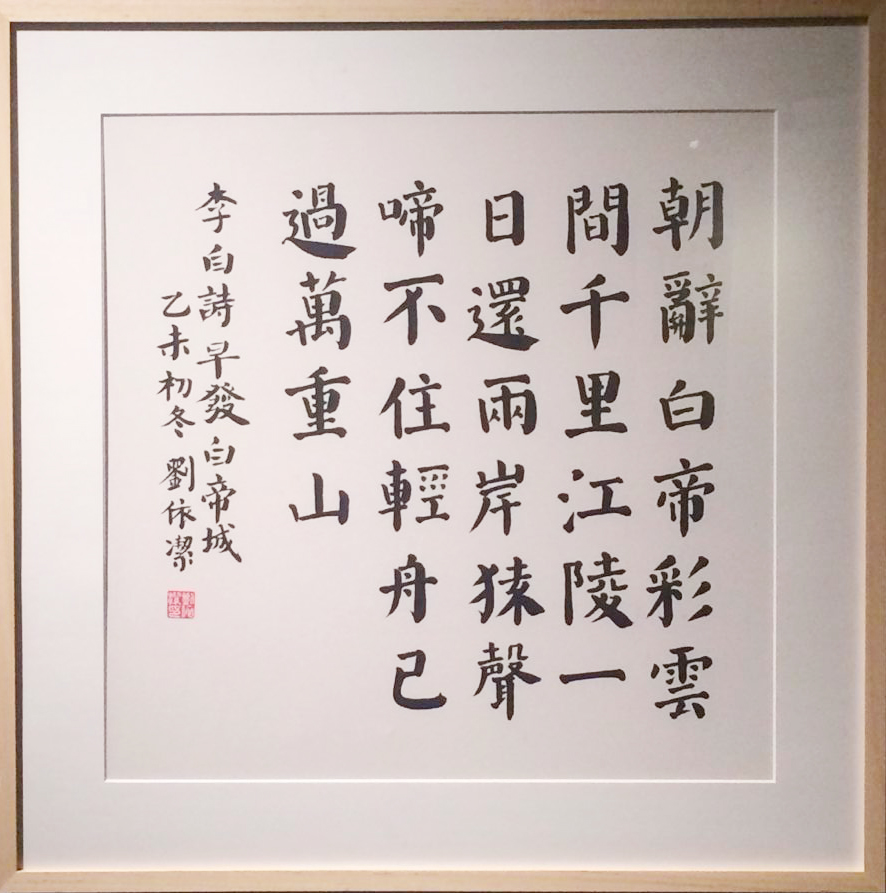 朝辭白帝彩雲
間千里江陵一
日還兩岸猿聲
啼不住輕舟已
過萬重山
李白詩早發白帝城
乙未初冬劉依潔